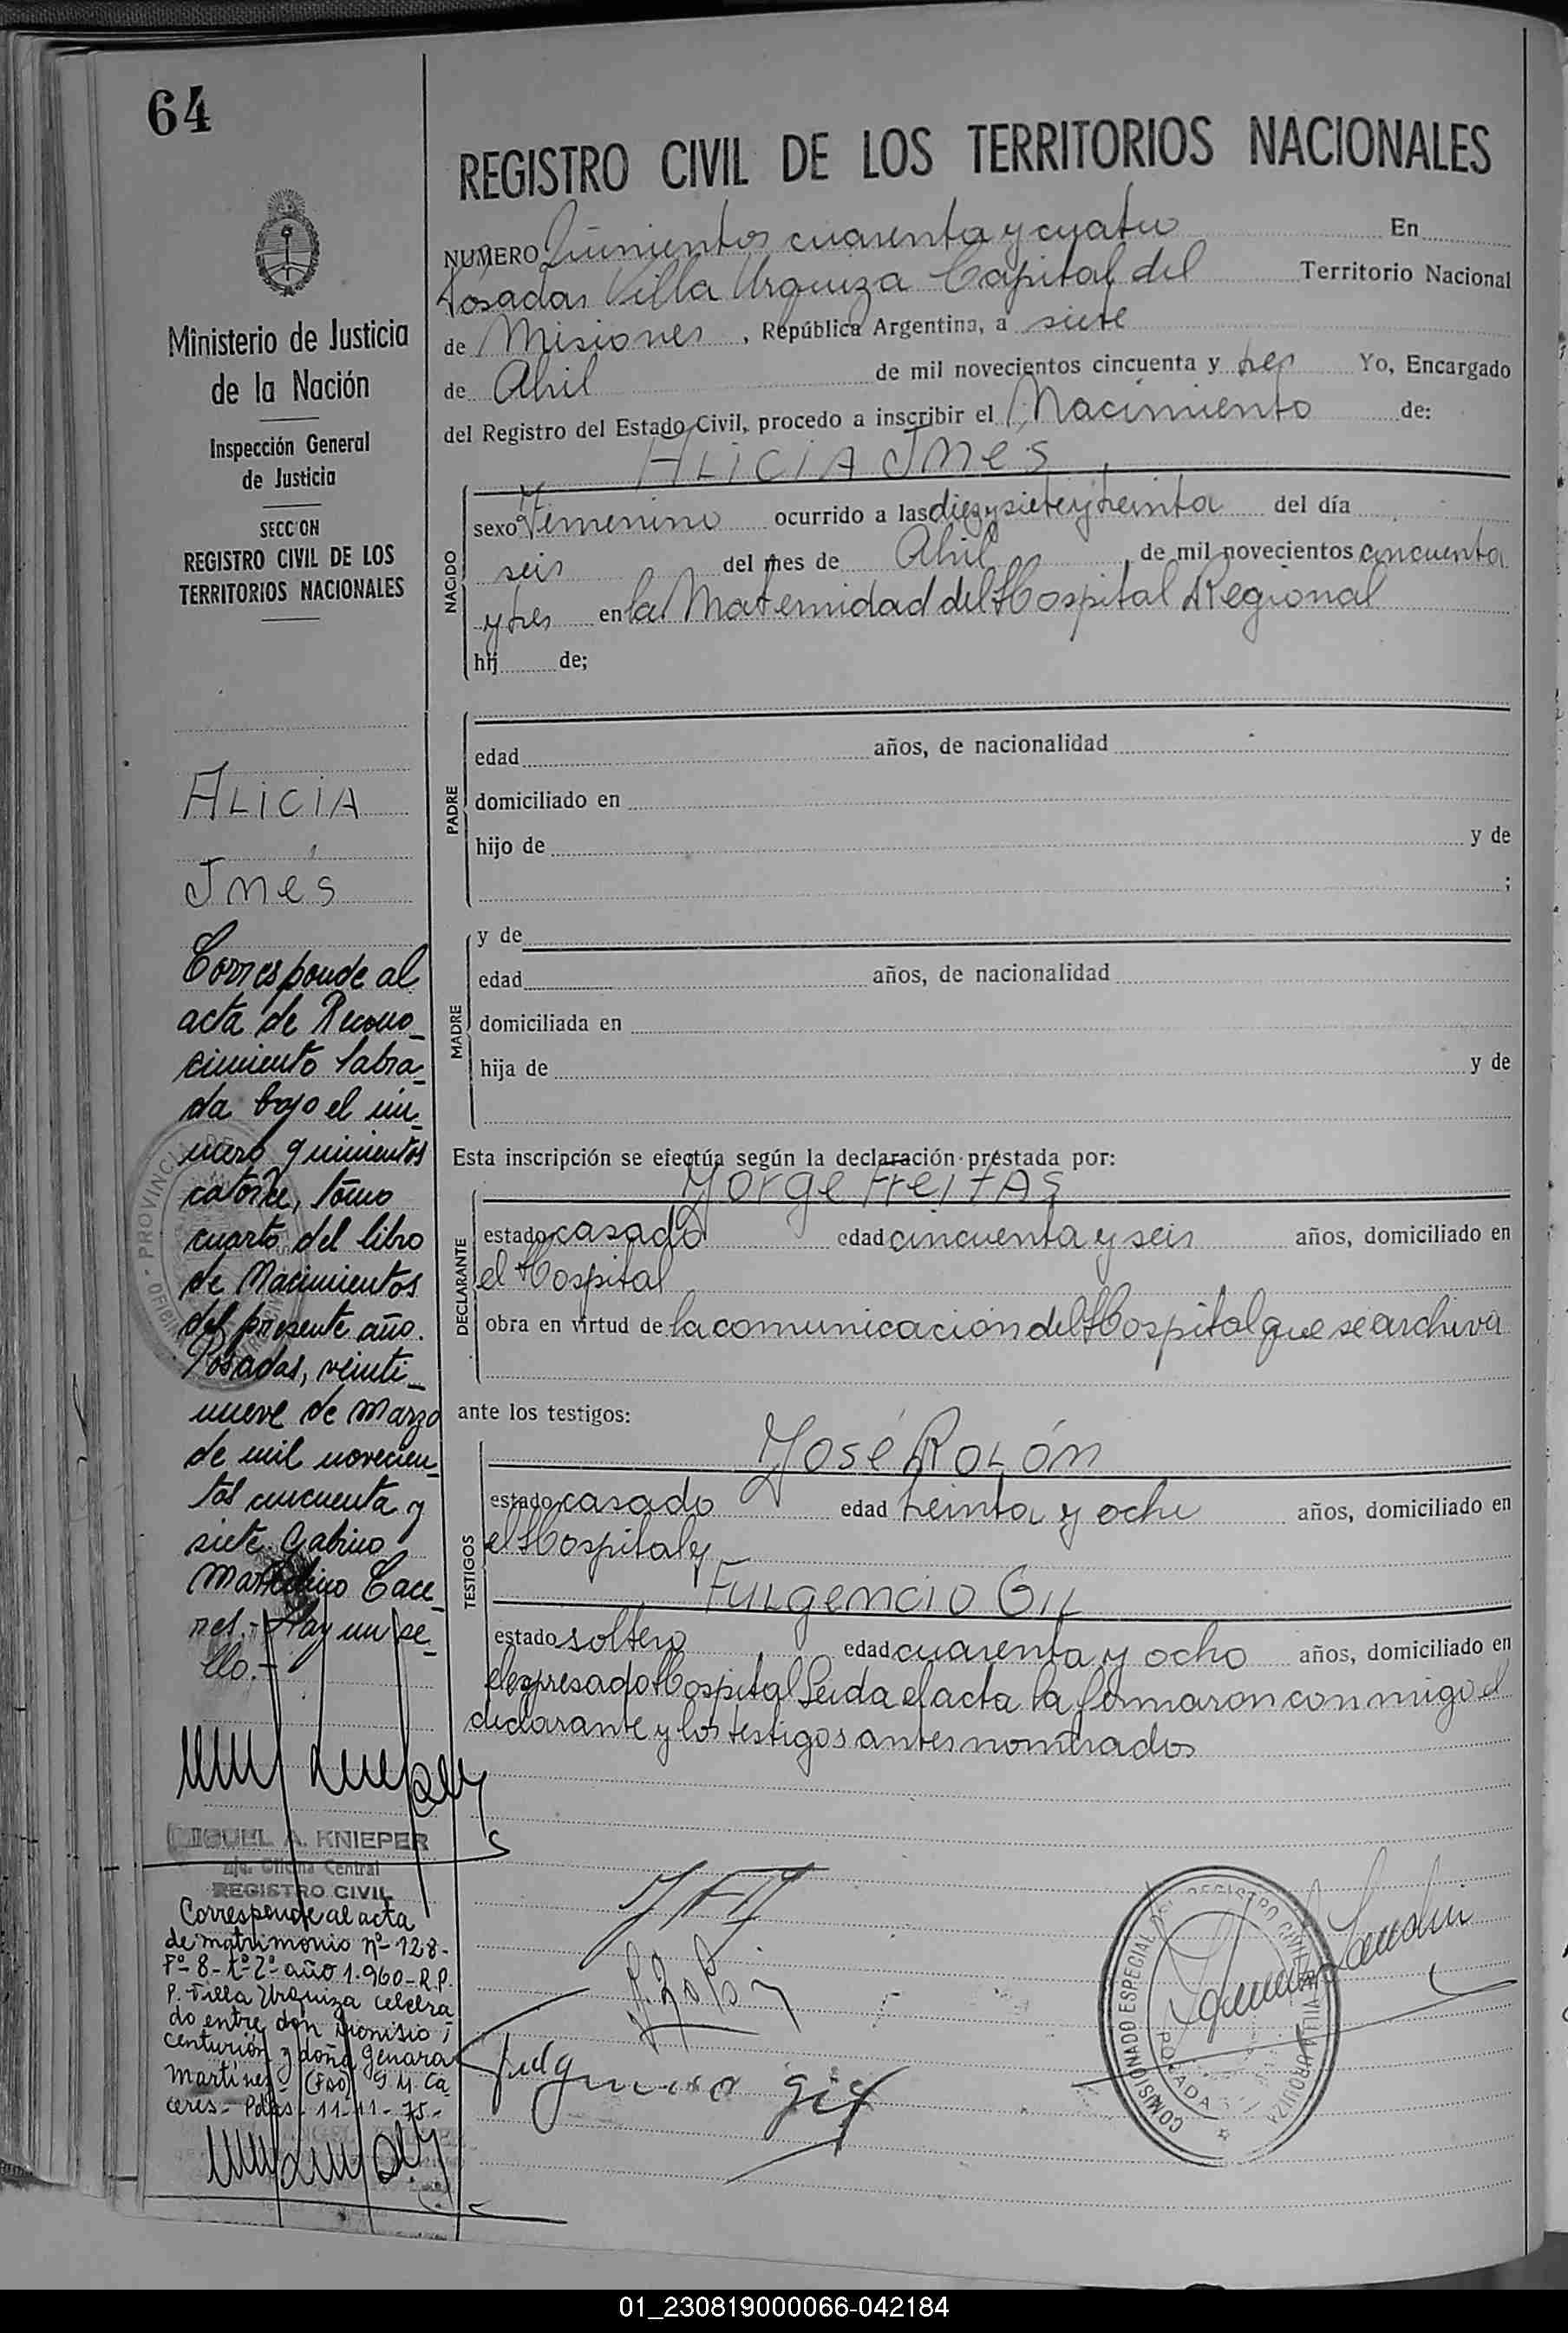 64
REGISTRO CIVIL DE LOS TERRITORIOS NACIONALES
Ministerio de Justicia
de la Nación
Inspección General
de Justicia
SECCION
REGISTRO CIVIL DE LOS
TERRITORIOS NACIONALES
ALICIA
Inés
Corresponde al
acta de Recono-
cimiento labra-
da bajo el nú-
mero quinientos
catorce, tomo
cuarto del libro
de Nacimientos
del presente año.
Posadas, veinti-
nueve de Marzo
de mil novecien-
tos cincuenta y
siete. Gabino
Marcelino Cace-
res.- Hay un se-
llo.-
MIGUEL A. KNIEPER
Oficina Central
REGISTRO CIVIL
Corresponde al acta
de matrimonio nº 128-
Fº 8- tº 2º año 1.960- R.P.
P. Villa Urquiza celebra
do entre don Dionisio
Centurión y doña Genara
Martínez (Fdo) G M Ca
ceres- Pdas- 11-11-75-
NUMERO Quinientos cuarenta y cuatro En
Posadas Villa Urquiza Capital del Territorio Nacional
de Misiones, República Argentina, a siete
de Abril de mil novecientos cincuenta y tres Yo, Encargado
del Registro del Estado Civil, procedo a inscribir el Nacimiento de:
ALICIA Inés
NACIDO
sexo Femenino ocurrido a las diez y siete y treinta del día
seis del mes de Abril de mil novecientos cincuenta
y tres en la Maternidad del Hospital Regional
hij de;
PADRE
edad años, de nacionalidad
domiciliado en
hijo de y de
;
MADRE
y de
edad años, de nacionalidad
domiciliada en
hija de y de
Esta inscripción se efectúa según la declaración prestada por:
DECLARANTE
Jorge Freitas
estado casado edad cincuenta y seis años, domiciliado en
el Hospital
obra en virtud de la comunicación del Hospital que se archiva
ante los testigos:
TESTIGOS
José Rolón
estado casado edad treinta y ocho años, domiciliado en
el Hospital y
Fulgencio Gil
estado soltero edad cuarenta y ocho años, domiciliado en
el expresado Hospital Leida el acta la firmaron conmigo el
declarante y los testigos antes nombrados
Fulgencio Gil
COMISIONADO ESPECIAL DEL REGISTRO CIVIL VILLA URQUIZA
POSADAS
01_230819000066-042184